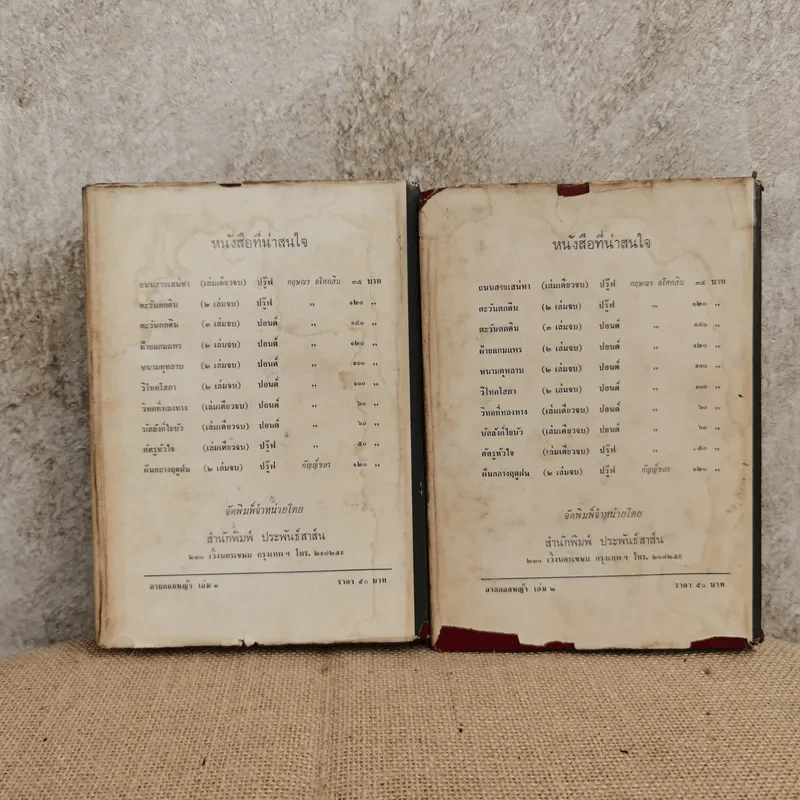 หนังสือที่น่าสนใจ
ถนนสายเสน่หา (เล่มเดียวจบ) ปรู๊ฟ กฤษณา อโศกสิน ๓๕ บาท
ตะวันตกดิน (๒ เล่มจบ) ปรู๊ฟ ,, ๑๒๐ ,,
ตะวันตกดิน (๓ เล่มจบ) ปอนด์ ,, ๑๕๐ ,,
ฝ้ายแกมแพร (๒ เล่มจบ) ปอนด์ ,, ๑๒๐ ,,
หนามกุหลาบ (๒ เล่มจบ) ปอนด์ ,, ๑๐๐ ,,
วิโหคโสภา (๒ เล่มจบ) ปอนด์ ,, ๑๐๐ ,,
วิหคที่หลงทาง (เล่มเดียวจบ) ปอนด์ ,, ๖๐ ,,
บัลลังก์ใยบัว (เล่มเดียวจบ) ปอนด์ ,, ๖๐ ,,
ศัตรูหัวใจ (เล่มเดียวจบ) ปรู๊ฟ ,, ๕๐ ,,
ฝันกลางฤดูฝน (๒ เล่มจบ) ปรู๊ฟ กัญญ์ชลา ๑๒๐ ,,
จัดพิมพ์จำหน่ายโดย
สำนักพิมพ์ ประพันธ์สาส์น
เวิ้งนครเขษม กรุงเทพ ฯ โทร.
ลายตลอดหญ้า เล่ม ๑ ราคา ๕๐ บาท
หนังสือที่น่าสนใจ
ถนนสายเสน่หา (เล่มเดียวจบ) ปรู๊ฟ กฤษณา อโศกสิน ๓๕ บาท
ตะวันตกดิน (๒ เล่มจบ) ปรู๊ฟ ,, ๑๒๐ ,,
ตะวันตกดิน (๓ เล่มจบ) ปอนด์ ,, ๑๕๐ ,,
ฝ้ายแกมแพร (๒ เล่มจบ) ปอนด์ ,, ๑๒๐ ,,
หนามกุหลาบ (๒ เล่มจบ) ปอนด์ ,, ๑๐๐ ,,
วิโหคโสภา (๒ เล่มจบ) ปอนด์ ,, ๑๐๐ ,,
วิหคที่หลงทาง (เล่มเดียวจบ) ปอนด์ ,, ๖๐ ,,
บัลลังก์ใยบัว (เล่มเดียวจบ) ปอนด์ ,, ๖๐ ,,
ศัตรูหัวใจ (เล่มเดียวจบ) ปรู๊ฟ ,, ๕๐ ,,
ฝันกลางฤดูฝน (๒ เล่มจบ) ปรู๊ฟ กัญญ์ชลา ๑๒๐ ,,
จัดพิมพ์จำหน่ายโดย
สำนักพิมพ์ ประพันธ์สาส์น
เวิ้งนครเขษม กรุงเทพ ฯ โทร.
เล่ม ๒ ราคา ๕๐ บาท